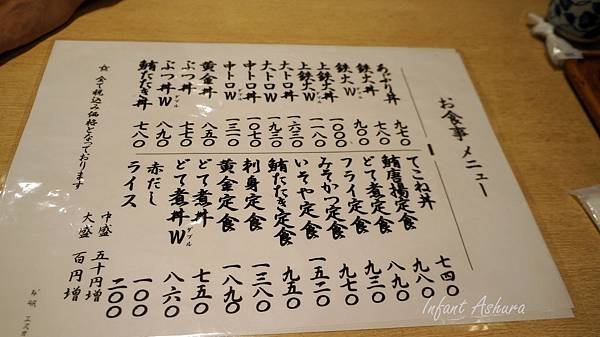 お食事メニュー
あぶり丼
鉄火丼
鉄火W ダブル
上鉄火丼
上鉄火W ダブル
大トロ丼
大トロW ダブル
中トロ丼
中トロW ダブル
黄金丼
ぶつ丼
ぶつ丼W ダブル
鮪たたき丼
九七〇
七八〇
一〇〇〇
一一八〇
一六三〇
一九三〇
一〇七〇
一三一〇
八五〇
八九〇
七八〇
てこね丼 七四〇
鮪唐揚定食 九八〇
どて煮定食 八九〇
フライ定食 九三〇
みそかつ定食 九七〇
いそや定食 一五二〇
鮪たたき定食 九五〇
刺身定食 一三八〇
黄金定食 一八九〇
どて煮丼 七五〇
どて煮丼W ダブル 八六〇
赤だし 一〇〇
ライス 二〇〇
中盛 五十円増
大盛 百円増
☆ 全て税込み価格となっております
Infant Ashura